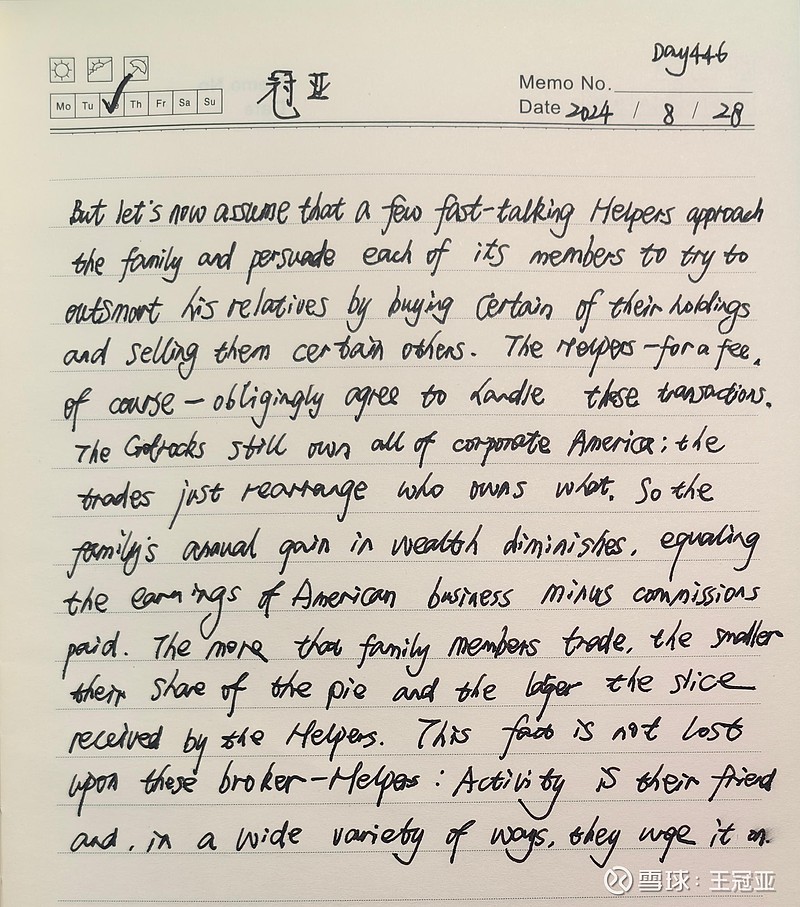 Day446
冠亚
Memo No.
Mo Tu Th Fr Sa Su
Date 2024 / 8 / 28
But let's now assume that a few fast-talking Helpers approach
the family and persuade each of its members to try to
outsmart his relatives by buying certain of their holdings
and selling them certain others. The Helpers-for a fee,
of course-obligingly agree to handle these transactions.
The Gotrocks still own all of corporate America; the
trades just rearrange who owns what. So the
family's annual gain in wealth diminishes, equaling
the earnings of American business minus commissions
paid. The more that family members trade, the smaller
their share of the pie and the larger the slice
received by the Helpers. This fact is not lost
upon these broker-Helpers: Activity is their friend
and, in a wide variety of ways, they urge it on.
雪球：王冠亚